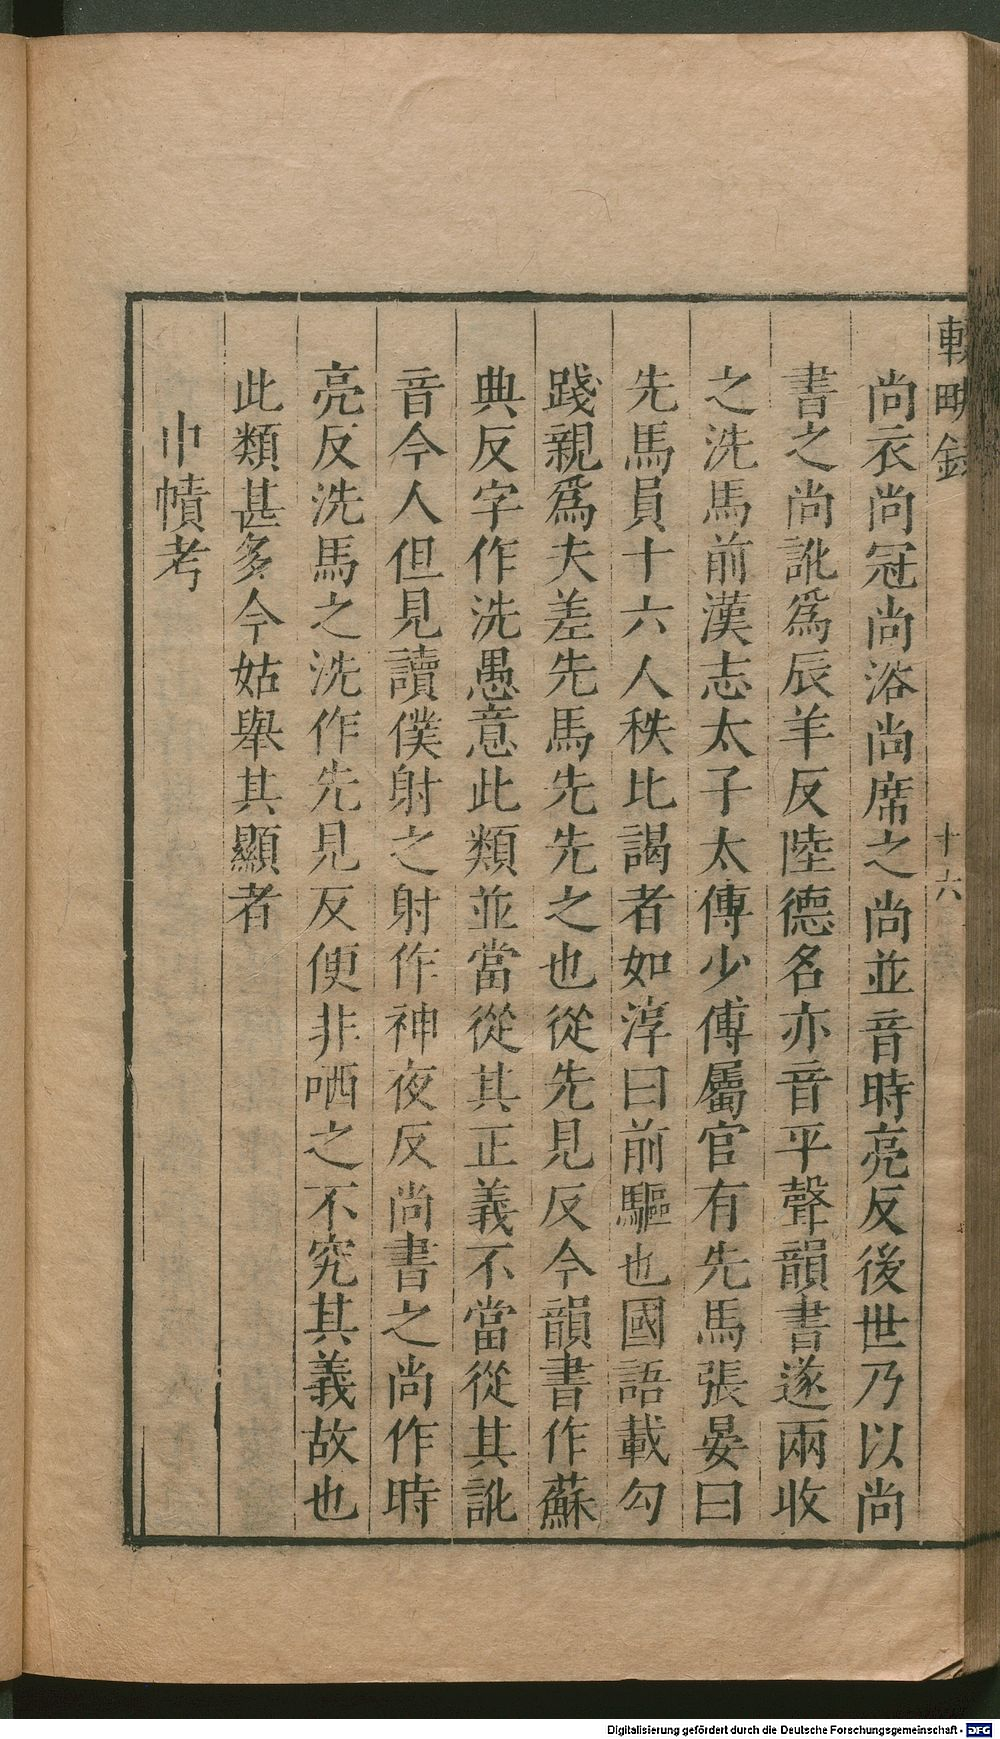 輟畊錄 十六
尚衣尚冠尚浴尚席之尚並音時亮反後世乃以尚
書之尚訛爲辰羊反陸德名亦音平聲韻書遂兩收
之洗馬前漢志太子太傅少傅屬官有先馬張晏曰
先馬員十六人秩比謁者如淳曰前驅也國語載勾
踐親爲夫差先馬先先之也從先見反今韻書作蘇
典反字作洗愚意此類並當從其正義不當從其訛
音今人但見讀僕射之射作神夜反尚書之尚作時
亮反洗馬之洗作先見反便非哂之不究其義故也
此類甚多今姑舉其顯者
巾幘考
Digitalisierung gefördert durch die Deutsche Forschungsgemeinschaft - DFG